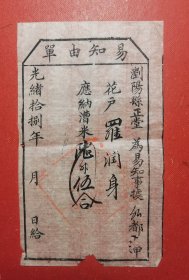 易知由單
瀏陽縣正堂 為易知事據 弘都
花戶 羅潤身
應納漕米 陸升伍合
光緒拾捌年 月 日給